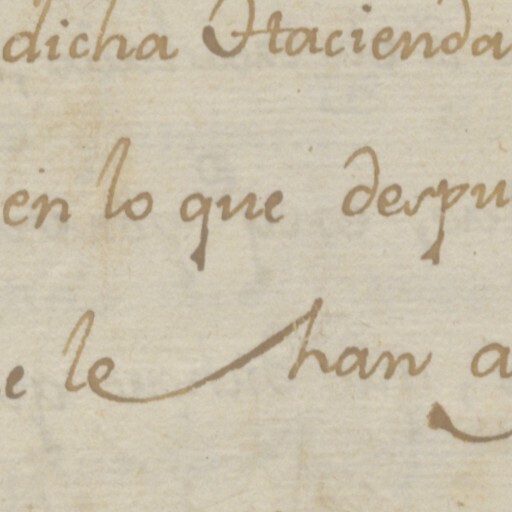 dicha Hacienda
en lo que despu
e le han a